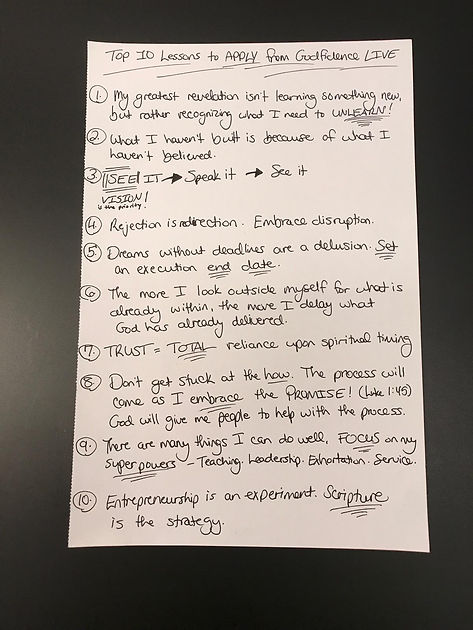 Top 10 Lessons to APPLY from Godfidence LIVE
1. My greatest revelation isn't learning something new,
but rather recognizing what I need to UNLEARN!
2. What I haven't built is because of what I
haven't believed.
3. SEE IT → Speak it → See it
VISION!
is the priority!
4. Rejection is redirection. Embrace disruption.
5. Dreams without deadlines are a delusion. Set
an execution end date.
6. The more I look outside myself for what is
already within, the more I delay what
God has already delivered.
7. TRUST = TOTAL reliance upon spiritual timing
8. Don't get stuck at the how. The process will
come as I embrace the PROMISE! (Luke 1:45)
God will give me people to help with the process.
9. There are many things I can do well, FOCUS on my
superpowers - Teaching. Leadership. Exhortation. Service.
10. Entrepreneurship is an experiment. Scripture
is the strategy.